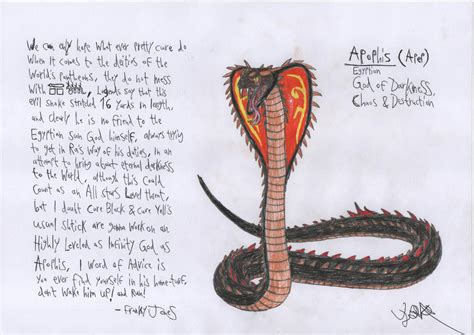 We can only hope what ever pretty cure do
When it comes to the deities of the
World's pantheons, they do not mess
With Legends say that this
evil snake streched 16 Yards in length,
and clearly he is no friend to the
Egyptian sun God himself, always trying
to get in Ra's Way of his duties, In an
attempt to bring about eternal darkness
to the World, although this could
Count as an All stars Level threat,
but I doubt Cure Black & Cure
usual shtick are gonna work on an
Highly Leveled as Infinity God as
Apophis, 1 Word of Advice is
You ever find yourself in his home turf,
don't Wake him up! and Run!
- Franky Jones
Apophis (Apep)
Egyptian
God of Darkness,
Chaos & Destruction